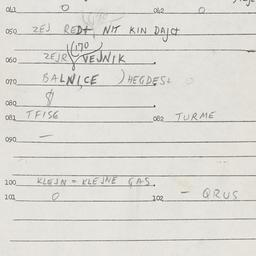 041 0 042 0
050 ZEJ REDT, NIT KIN DAJCT
170
060 ZEJR VEJNIK
070 BALNICE ) HEGDESL O
080
081 TFISE 082 TURME
090 —
100 KLEJN = KLEJNE GAS.
101 0 102 — QRUS